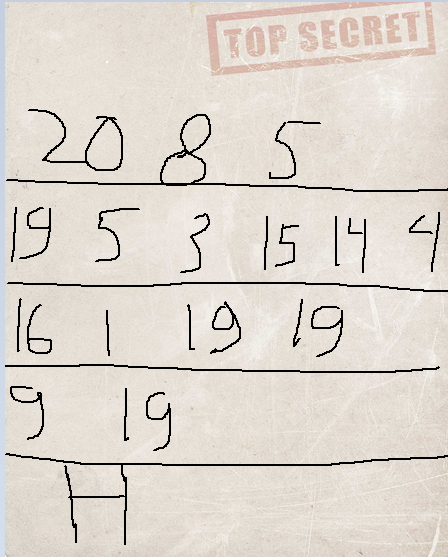 TOP SECRET
20 8 5
19 5 3 15 14 4
16 1 19 19
9 19
H